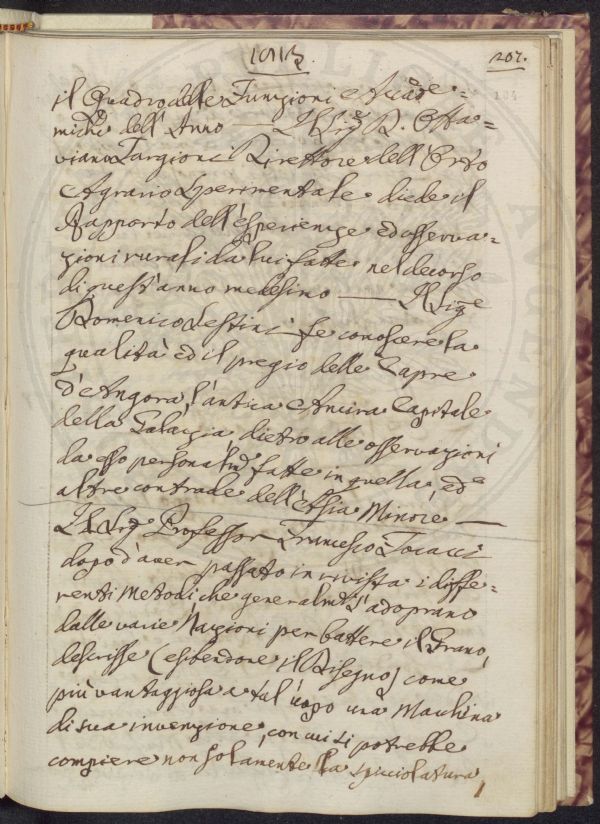 1813.
207.
204
il Quadro delle Funzioni Accade=
miche dell'Anno — Il Sig.e D. Otta=
viano Targioni Direttore dell'Orto
Agrario Sperimentale diede il
Rapporto dell'esperienze, ed osserva=
zioni rurali da lui fatte nel decorso
di quest'anno medesimo — Il Sig.e
Domenico Sestini fe conoscere la
qualità ed il pregio delle Capre
d'Angora, l'antica Ancira Capitale
della Galazia, dietro alle osservazioni
da esso personalm.te fatte in quella, ed
altre contrade dell'Assia Minore —
Il Sig.e Professor Francesco Focacci
dopo d'aver passato in rivista i diffe=
renti Metodi che generalm.te s'adoprano
dalle varie Nazioni per battere il Grano,
descrisse (esibendone il Disegno) come
più vantaggiosa a tal uopo una Macchina
di sua invenzione, con cui si potrebbe
compiere non solamente la sgicciolatura